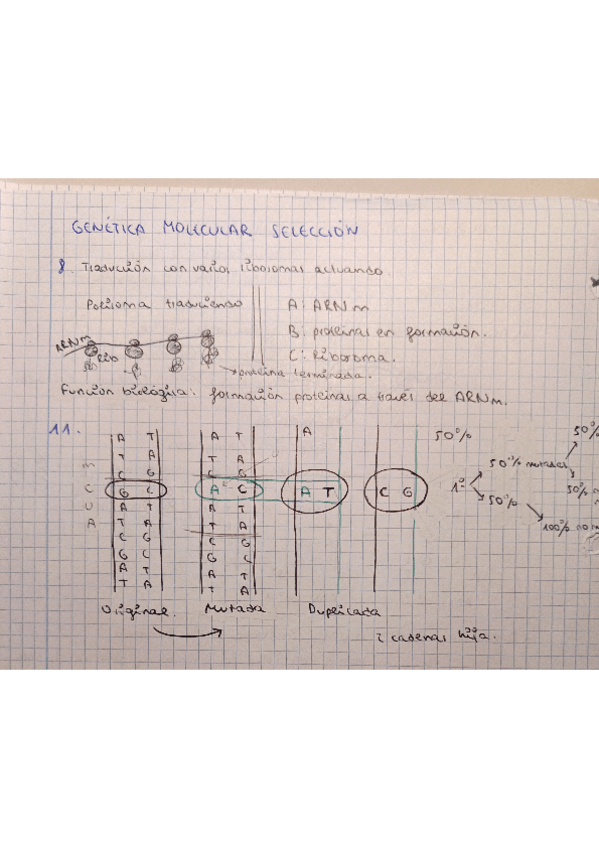 GENÉTICA MOLECULAR SELECCIÓN
8. Traducción con varios ribosomas actuando.
Polisoma traduciendo
A: ARNm
B: proteínas en formación.
C: Ribosoma.
ARNm
Rib
proteína terminada.
Función biológica: formación proteínas a través del ARNm.
11.
A T A T A 50% 50%
T A T A
C G C G 50% mutadas
G C A C A T C G 1º 50%
A T A T 50%
T A T A 100% no
C G C G
G C G C
A T A T
T A T A
m
C
U
A
Original Mutada Duplicada
2 cadenas hija.